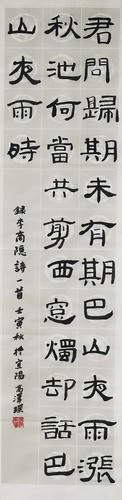 君問歸期未有期巴山夜雨漲
秋池何當共剪西窓燭却話巴
山夜雨時
錄李商隱詩一首壬寅秋於宜陽高澤琛